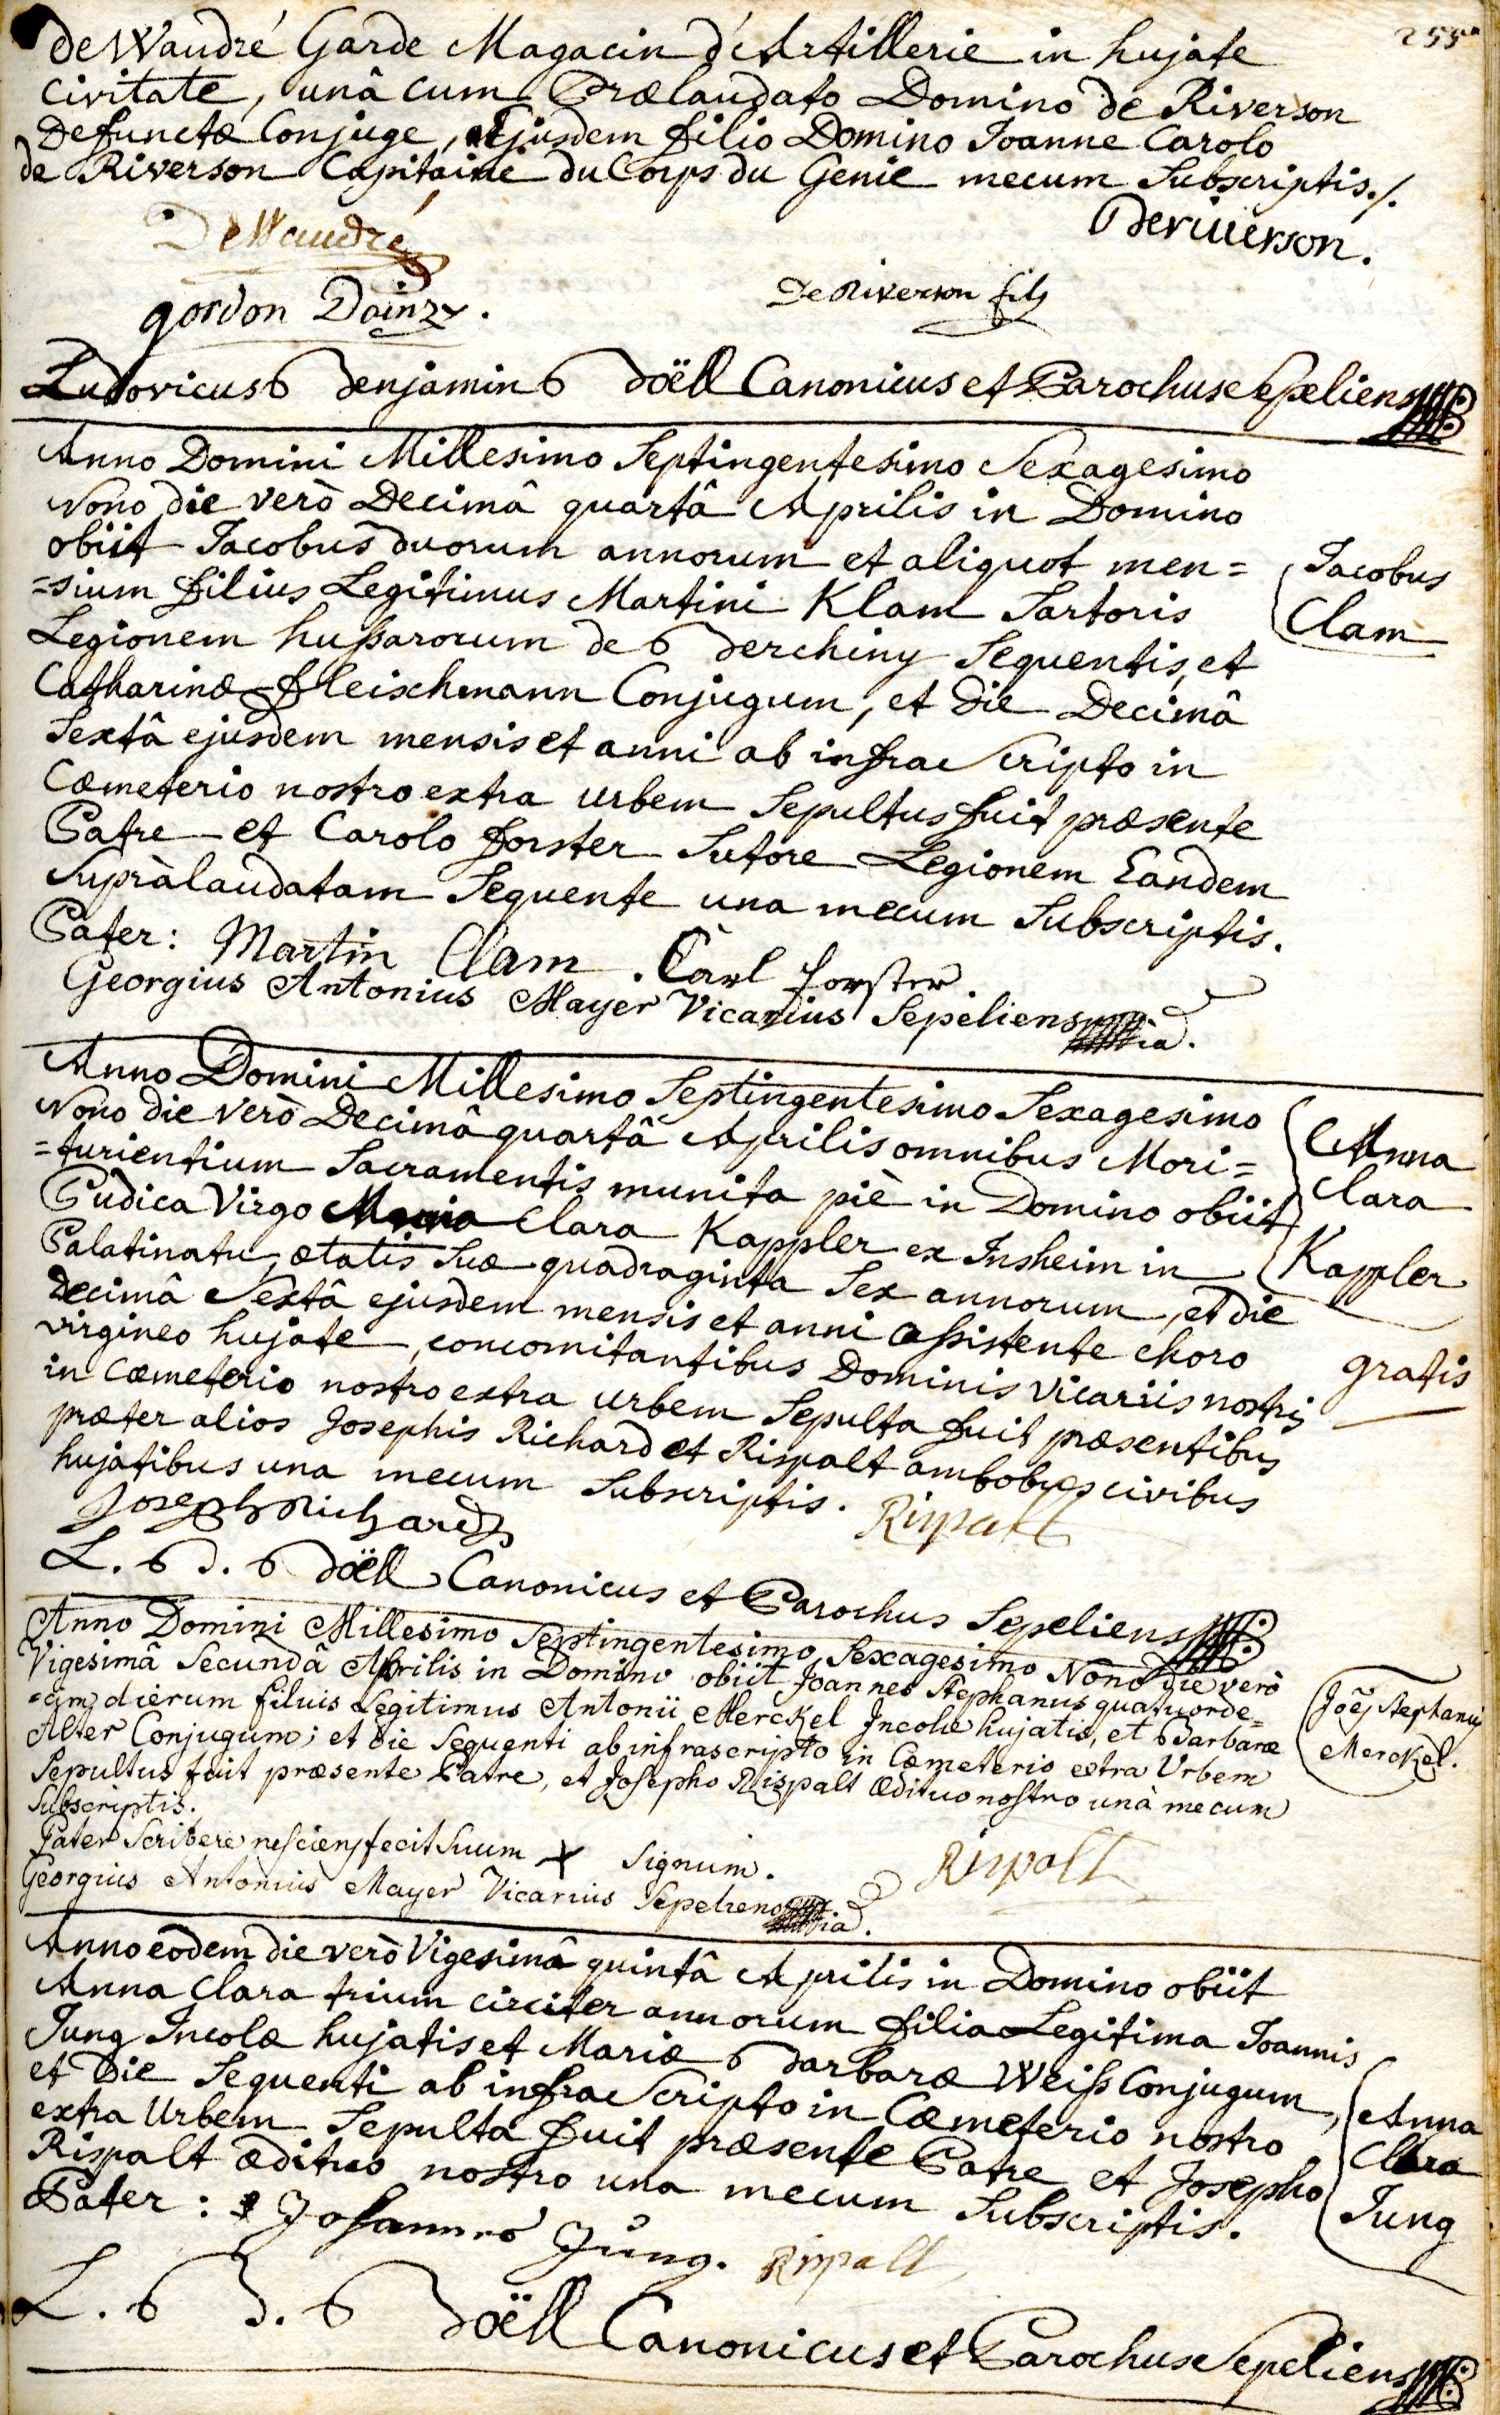 255
de Waudré Garde Magacin d'Artillerie in hujate
Civitate, unâ cum Prælaudato Domino de Riverson
Defunctæ Conjuge, Ejusdem filio Domino Joanne Carolo
de Riverson Capitaine du Corps du Genie mecum Subscriptis./.
DeWaudré
Deriverson.
gordon Dainzy.
DeRiverson fils
Ludovicus Benjamin Boëll Canonicus et Parochus Sepeliens
Anno Domini Millesimo Septingentesimo Sexagesimo
Nono die verò Decimâ quartâ Aprilis in Domino
obiit Jacobus duorum annorum et aliquot men=
=sium filius Legitimus Martini Klam Sartoris
Legionem hußarorum de Berchiny Sequentis, et
Catharinæ Fleischmann Conjugum, et die Decimâ
Sextâ ejusdem mensis et anni ab infra Scripto in
Cæmeterio nostro extra urbem Sepultus fuit præsente
Patre et Carolo Forster Sutore Legionem Eandem
Supràlaudatam Sequente una mecum Subscriptis.
Jacobus
Clam
Pater: Martin Clam. Carl Forster.
Georgius Antonius Mayer Vicarius Sepeliens
Anno Domini Millesimo Septingentesimo Sexagesimo
Nono die verò Decimâ quartâ Aprilis omnibus Mori=
=turientium Sacramentis munita piè in Domino obiit
Pudica Virgo Maria Clara Kappler ex Insheim in
Palatinatu, ætatis Suæ quadraginta Sex annorum, et die
Decimâ Sextâ ejusdem mensis et anni aßistente choro
virgineo hujate, concomitantibus Dominis Vicariis nostris
in Cæmeterio nostro extra urbem Sepulta fuit præsentibus
præter alios Josephis Richard et Rispalt ambobus civibus
hujatibus una mecum Subscriptis.
Anna
Clara
Kappler
gratis
Joseph Richard
Rispalt
L. B. Boëll Canonicus et Parochus Sepeliens
Anno Domini Millesimo Septingentesimo Sexagesimo Nono die verò
Vigesimâ Secundâ Aprilis in Domino obiit Joannes Stephanus quatuorde=
=cim dierum filius Legitimus Antonii Merckel Incolæ hujatis, et Barbaræ
Alter Conjugum; et die Sequenti ab infrascripto in Cæmeterio extra Urbem
Sepultus fuit præsente Patre, et Josepho Rispalt Ædituo nostro unà mecum
Subscriptis.
Joës Stephanus
Merckel.
Pater Scribere nesciens fecit Suum + Signum.
Rispalt
Georgius Antonius Mayer Vicarius Sepeliens
Anno eodem die verò Vigesimâ quintâ Aprilis in Domino obiit
Anna Clara trium circiter annorum filia Legitima Joannis
Jung Incolæ hujatis et Mariæ Barbaræ Weiß Conjugum,
et Die Sequenti ab infra Scripto in Cæmeterio nostro
extra Urbem Sepulta fuit præsente Patre et Josepho
Rispalt ædituo nostro una mecum Subscriptis.
Anna
Clara
Jung
Pater: Johannes Jung. Rispalt
L. B. Boëll Canonicus et Parochus Sepeliens